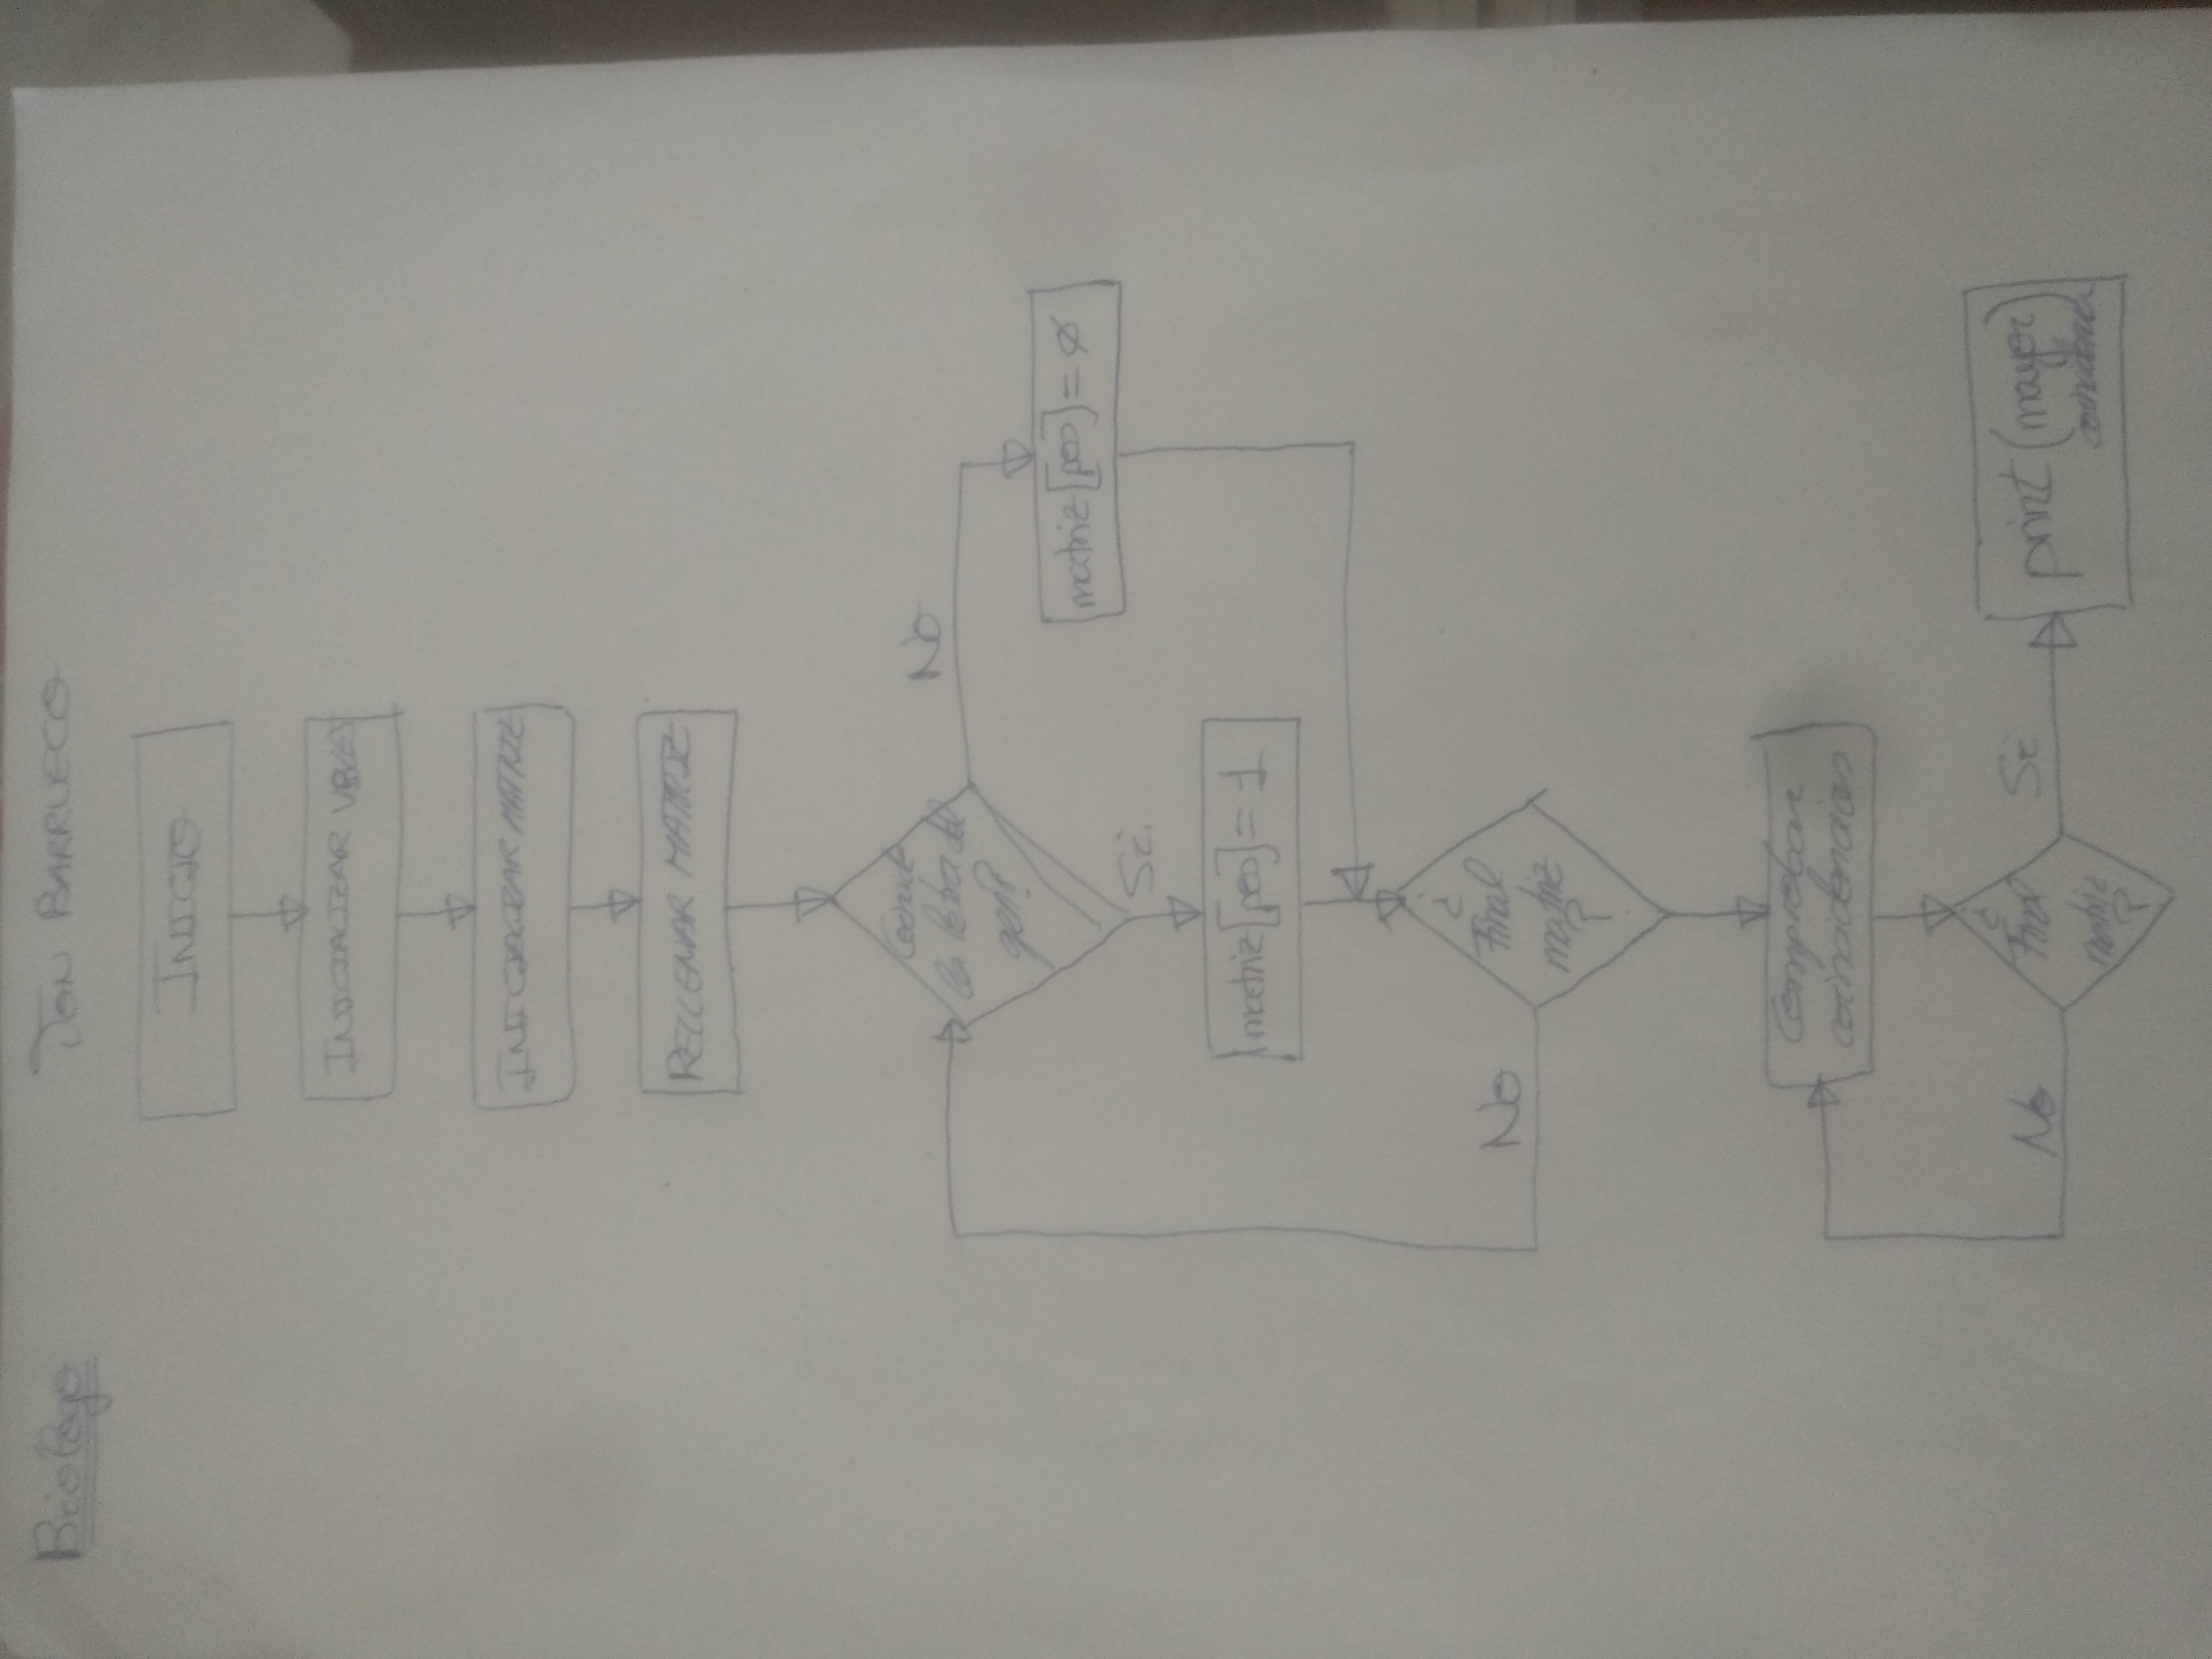 Biólogo
JON BARRUECO
INICIO
INICIALIZAR VBLES
INICIALIZAR MATRIZ
RELLENAR MATRIZ
Coincide
la letra del
gen?
No
matriz[pos]=0
Si.
matriz[pos]=1
¿
Final
matriz
?
No
Comprobar
coincidencias
¿
Final
matriz
?
No
Si
print(mayor)
coincidencia